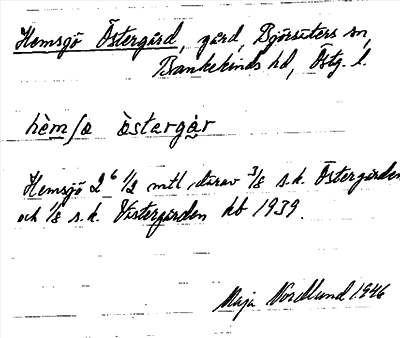 Hemsjö Östergård, gård, Björsäters sn,
Bankekinds hd, Östg. l.
hèmʃø östargår
Hemsjö 2 6 1/2 mtl, därav 3/8 s.k. Östergården
och 1/8 s.k. Västergården hb 1939.
Maja Nordlund 1946